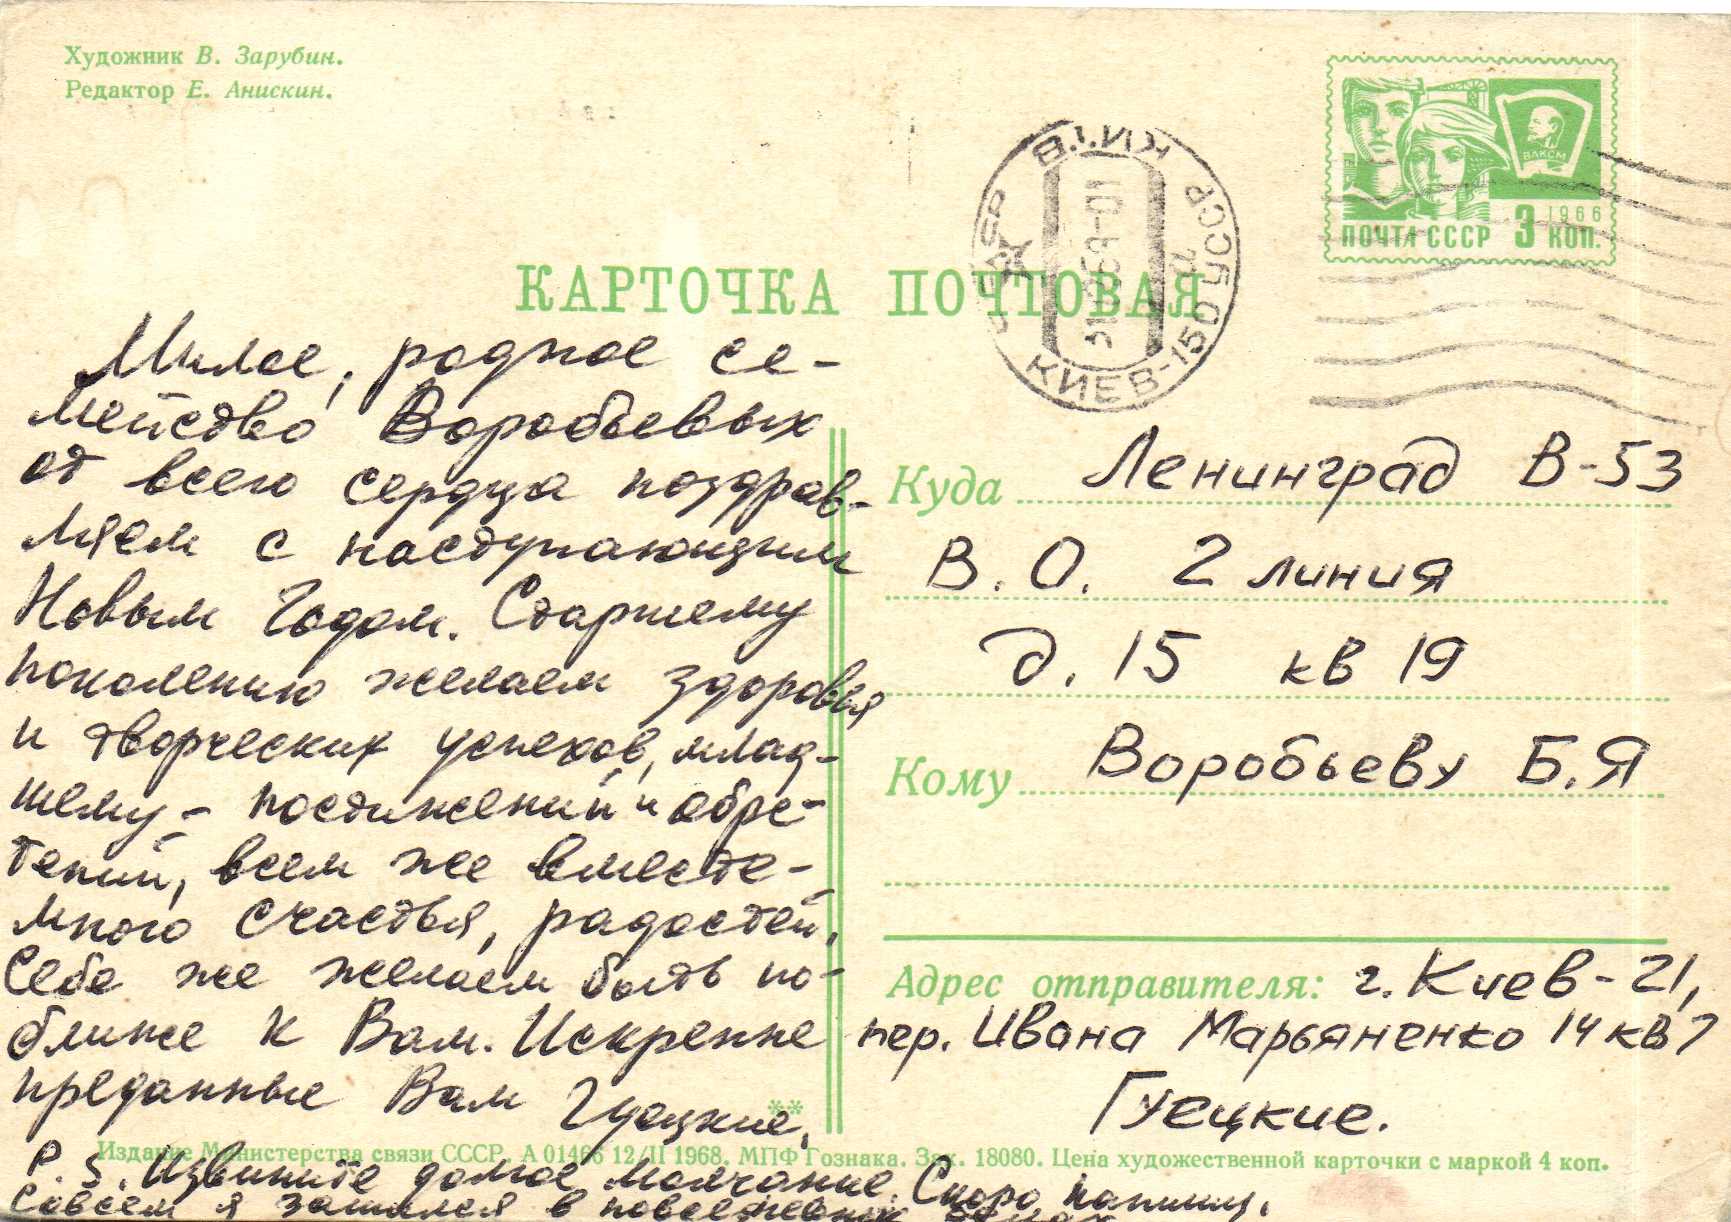 Художник В. Зарубин.
Редактор Е. Анискин.
ВЛКСМ
1966
ПОЧТА СССР 3 КОП.
КИЇВ
УССР
КИЕВ-150 УССР
КАРТОЧКА ПОЧТОВАЯ
Милое, родное се-
мейство Воробьевых
от всего сердца поздрав-
ляем с наступающим
Новым Годом. Старшему
поколению желаем здоровья
и творческих успехов, млад-
шему - постижений и обре-
тений, всем же вместе -
много счастья, радостей,
Себе же желаем быть по-
ближе к Вам. Искренне
преданные Вам Гуецкие.
P.S. Извините долгое молчание. Скоро напишу.
Совсем я зашился в повседневных делах
Куда Ленинград В-53
В.О. 2 линия
д. 15 кв 19
Кому Воробьеву Б.Я
Адрес отправителя: г. Киев-21,
пер. Ивана Марьяненко 14 кв 7
Гуецкие.
**
Издание Министерства связи СССР. А 01466 12/II 1968. МПФ Гознака. Зак. 18080. Цена художественной карточки с маркой 4 коп.